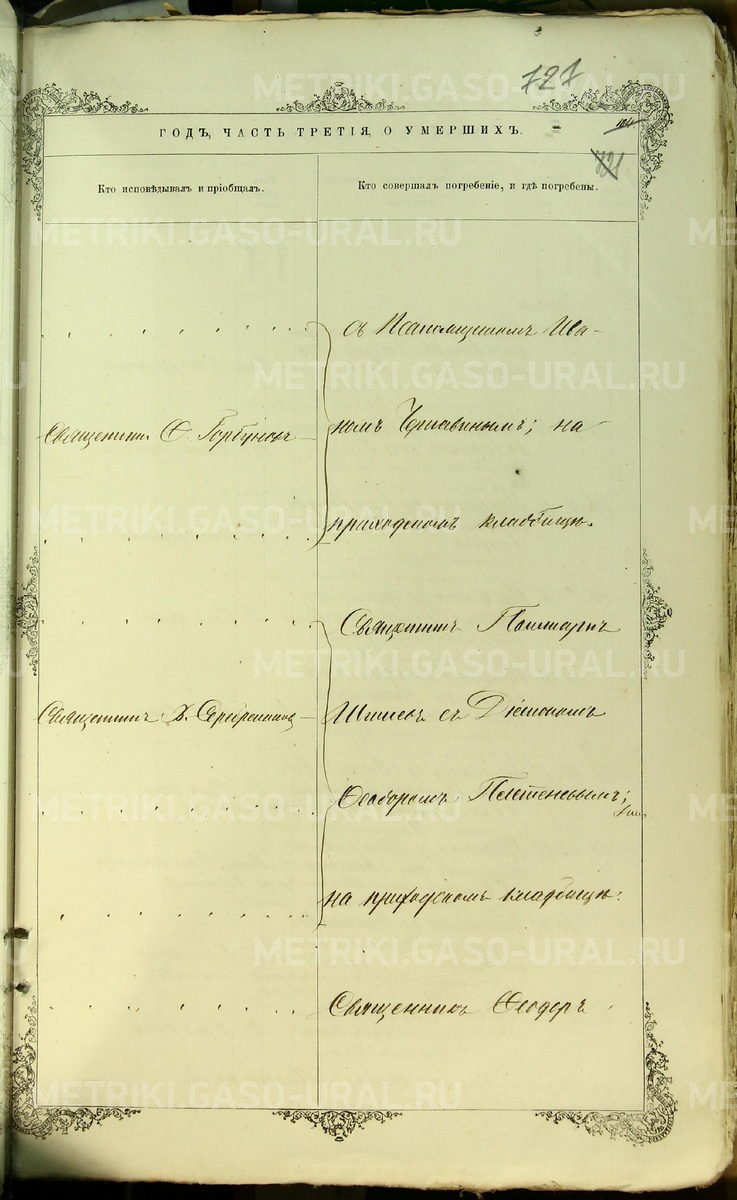 727
ГОДЪ, ЧАСТЬ ТРЕТІЯ, О УМЕРШИХЪ.
Кто исповѣдывалъ и пріобщалъ.
Кто совершалъ погребеніе, и гдѣ погребены.
съ Псаломщикомъ Ива-
Священникъ Ѳ. Горбуновъ
номъ Чернавинымъ; на
приходскомъ кладбищѣ.
Священникъ
Священникъ Серебренниковъ
съ Діакономъ
Ѳеодоромъ
на приходскомъ кладбищѣ.
Священникъ Ѳеодоръ
METRIKI.GASO-URAL.RU